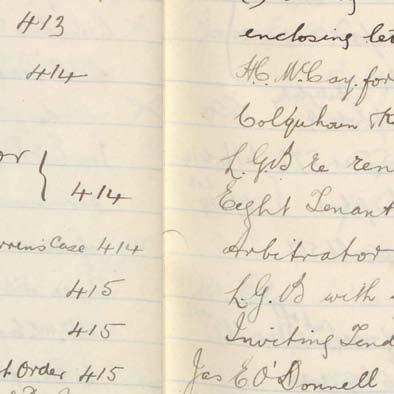 413
414
or }
414
Case 414
415
415
Order 415
enclosing let
H.C. McCay for
Colquhoun
L.G.B re ren
Eight Tenant
Arbitrator
L.G.B with
Inviting Tend
Jas E O'Donnell